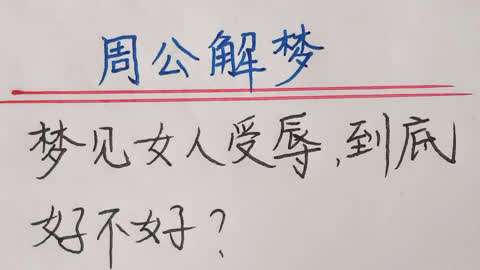 周公解梦
梦见女人受辱,到底
好不好?